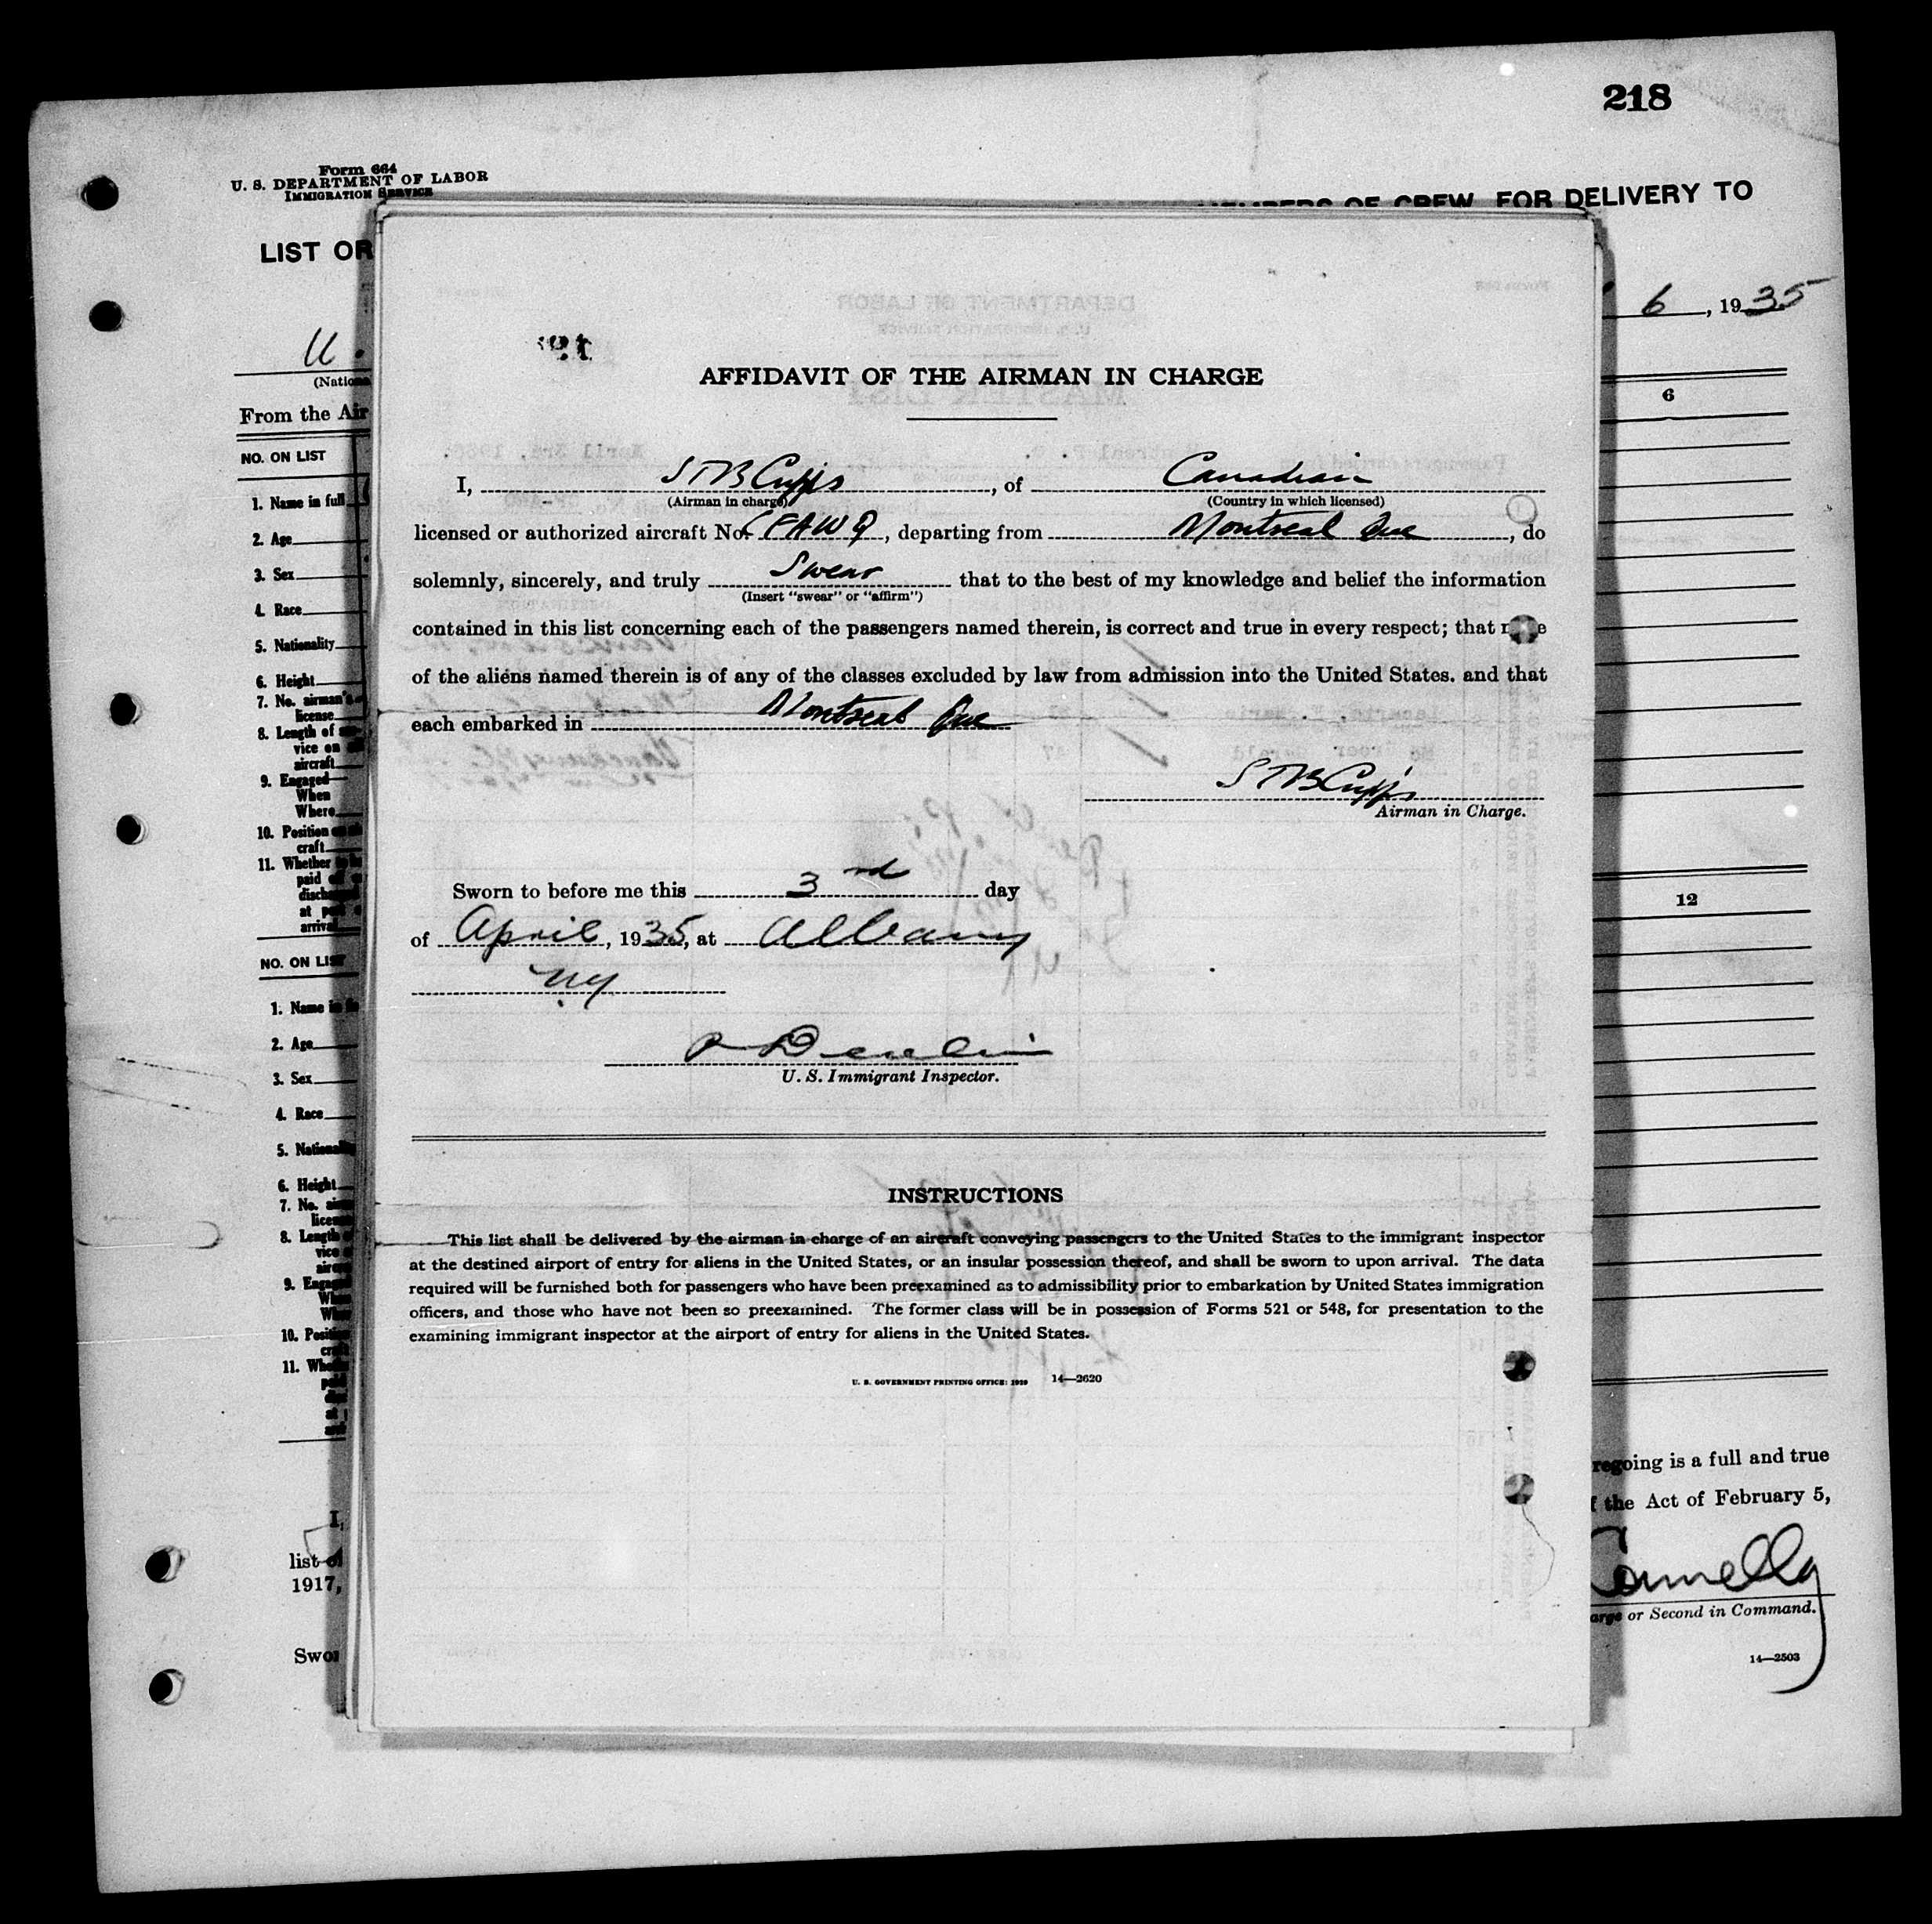 218
Form 664
U. S. DEPARTMENT OF LABOR
IMMIGRATION SERVICE
MEMBERS OF CREW, FOR DELIVERY TO
LIST OR
6, 1935
U.
From the Air
6
NO. ON LIST
1. Name in full
2. Age
3. Sex
4. Race
5. Nationality
6. Height
7. No. airman's
license
8. Length of
vice on
aircraft
9. Engaged
When
Where
10. Position
craft
11. Whether
paid
at
arrival
12
NO. ON LIST
1. Name
2. Age
3. Sex
4. Race
5. Nationality
6. Height
7. No.
8. Length
9. Engaged
10. Position
11.
I,
list
1917,
Swor
regoing is a full and true
f the Act of February 5,
Connelly
arge or Second in Command.
14—2503
AFFIDAVIT OF THE AIRMAN IN CHARGE
I, STB Cripps, of Canadian
(Airman in charge) (Country in which licensed)
licensed or authorized aircraft No. CFAWQ, departing from Montreal Que, do
solemnly, sincerely, and truly Swear that to the best of my knowledge and belief the information
(Insert "swear" or "affirm")
contained in this list concerning each of the passengers named therein, is correct and true in every respect; that none
of the aliens named therein is of any of the classes excluded by law from admission into the United States. and that
each embarked in Montreal Que
STB Cripps
Airman in Charge.
Sworn to before me this 3rd day
of April, 1935, at Albany
NY
U. S. Immigrant Inspector.
INSTRUCTIONS
This list shall be delivered by the airman in charge of an aircraft conveying passengers to the United States to the immigrant inspector
at the destined airport of entry for aliens in the United States, or an insular possession thereof, and shall be sworn to upon arrival. The data
required will be furnished both for passengers who have been preexamined as to admissibility prior to embarkation by United States immigration
officers, and those who have not been so preexamined. The former class will be in possession of Forms 521 or 548, for presentation to the
examining immigrant inspector at the airport of entry for aliens in the United States.
U. S. GOVERNMENT PRINTING OFFICE: 1929 14—2620